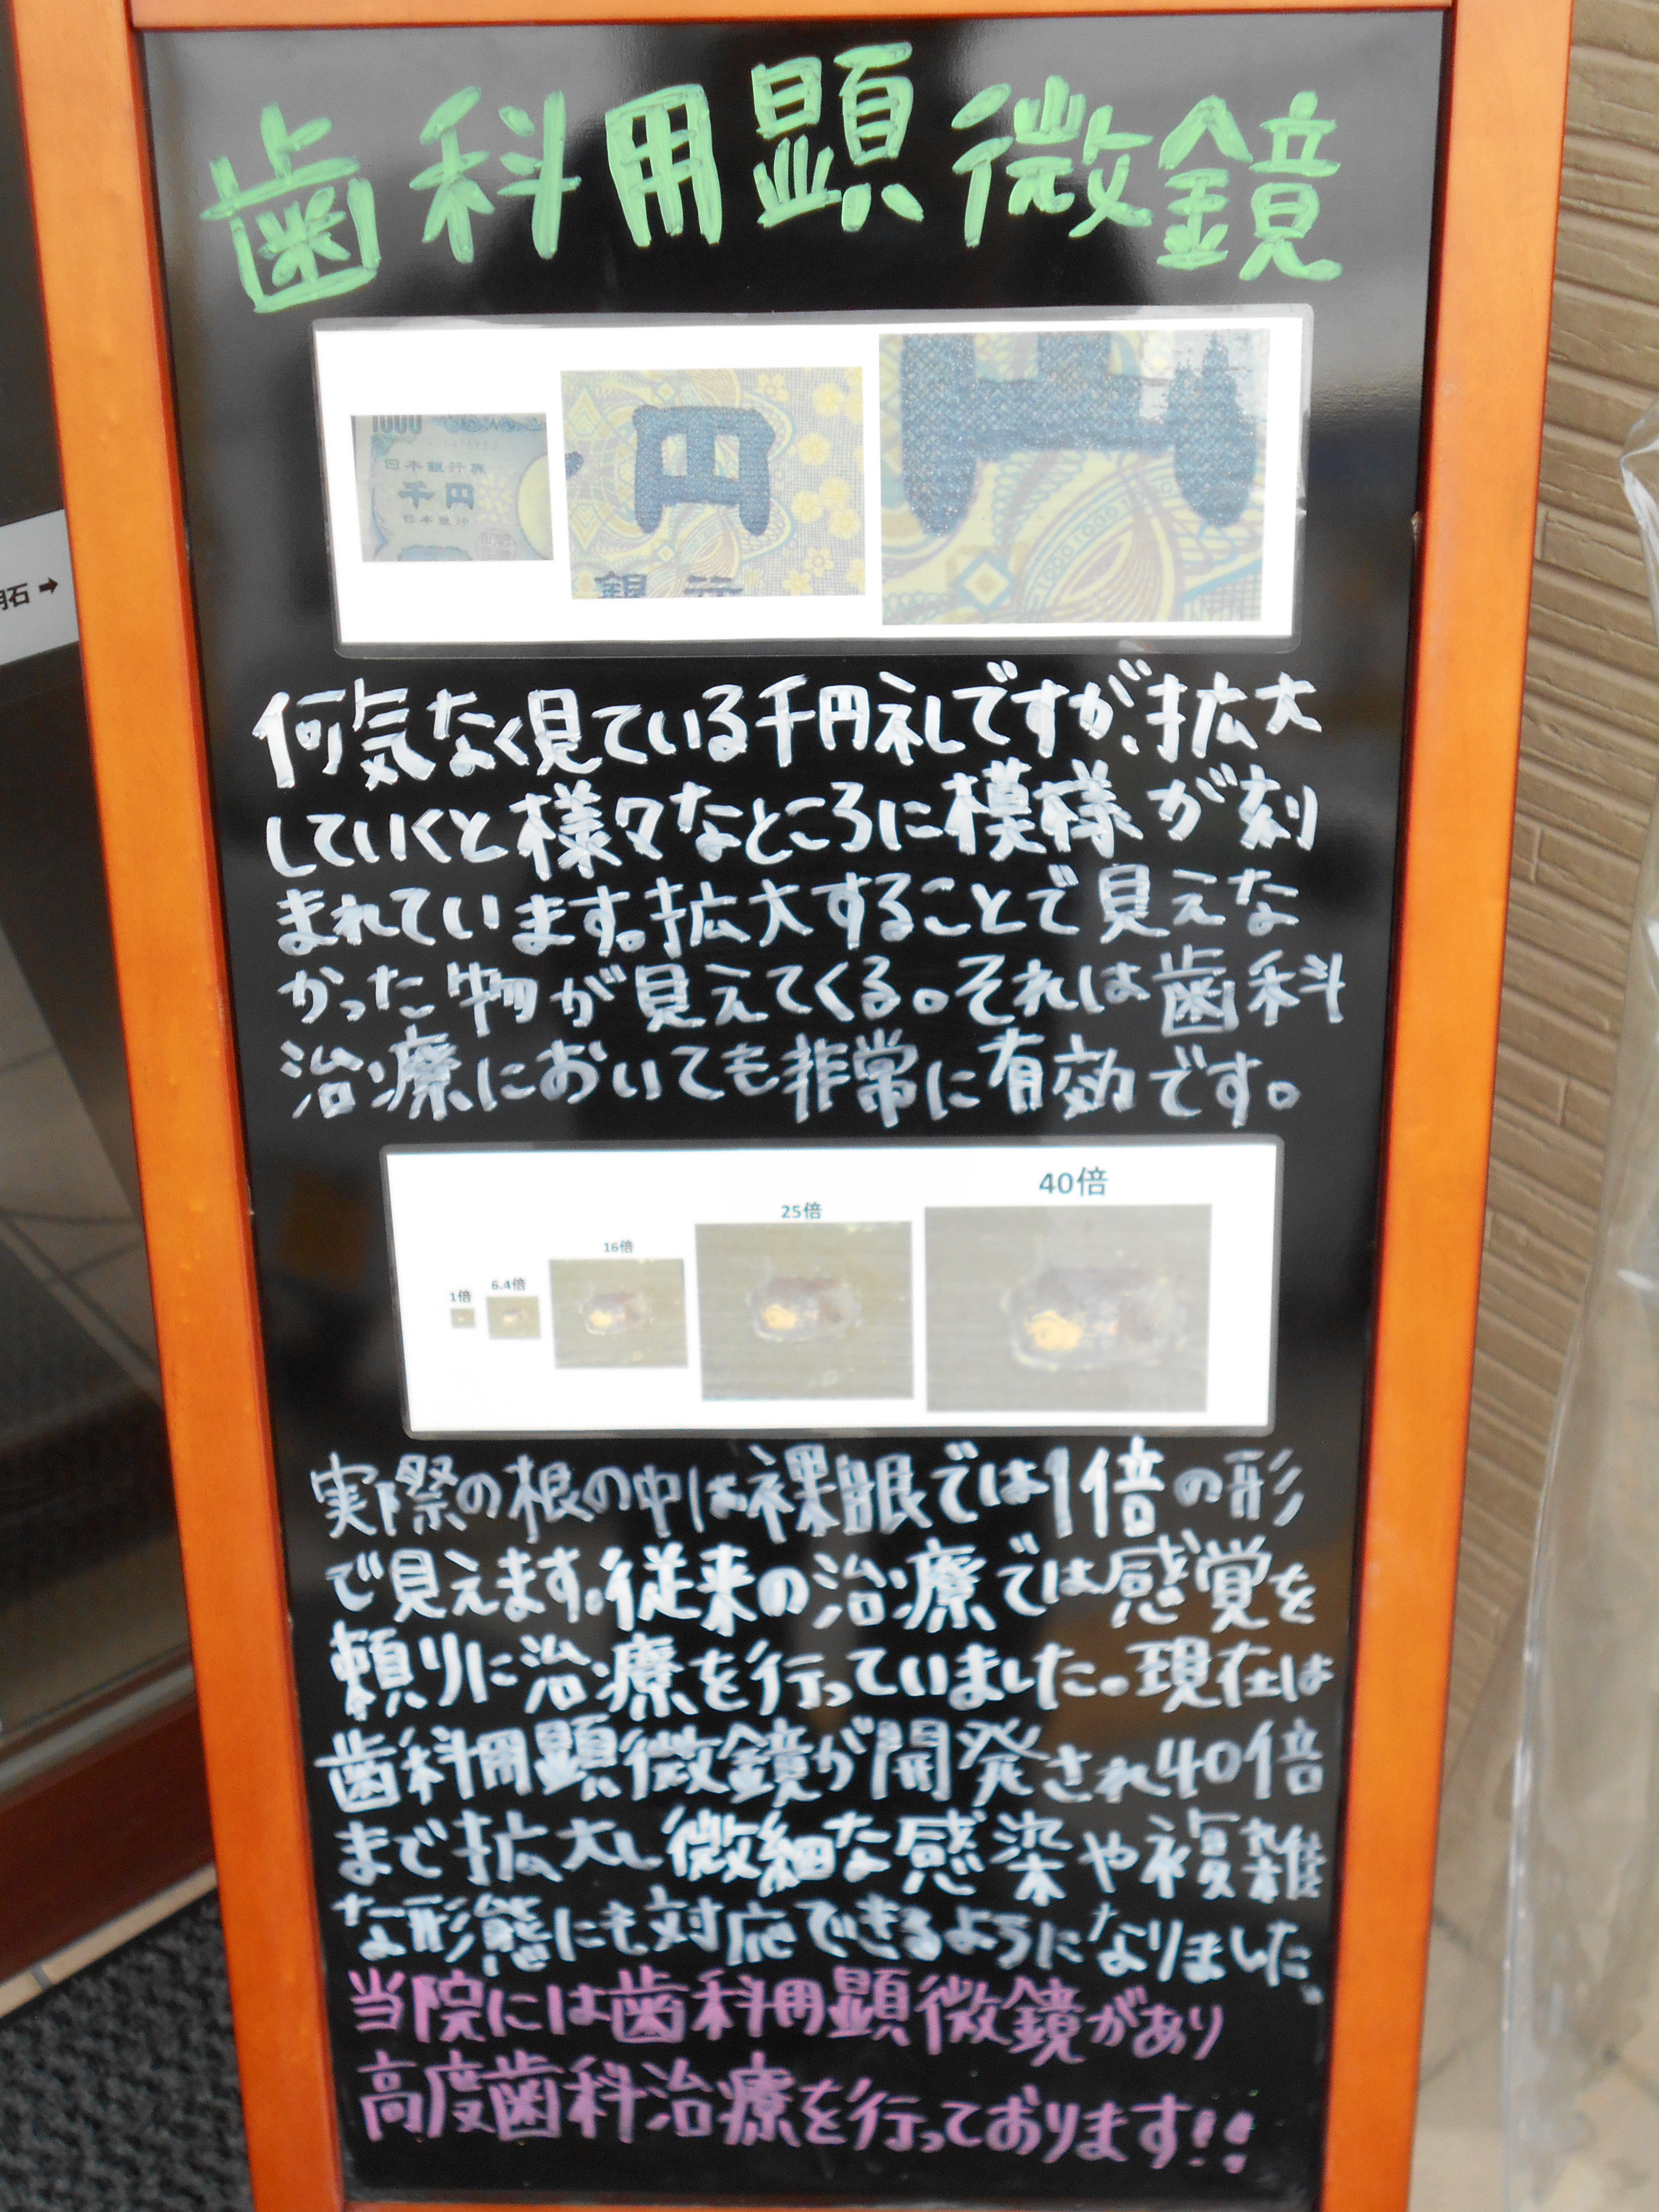 歯科用顕微鏡
1000
日本銀行券
千円
日本銀行
円
銀行
石→
何気なく見ている千円札ですが、拡大
していくと様々なところに模様が刻
まれています。拡大することで見えな
かった物が見えてくる。それは歯科
治療においても非常に有効です。
1倍
6.4倍
16倍
25倍
40倍
実際の根の中は裸眼では1倍の形
で見えます。従来の治療では感覚を
頼りに治療を行っていました。現在は
歯科用顕微鏡が開発され40倍
まで拡大し微細な感染や複雑
な形態にも対応できるようになりました。
当院には歯科用顕微鏡があり
高度歯科治療を行っております!!